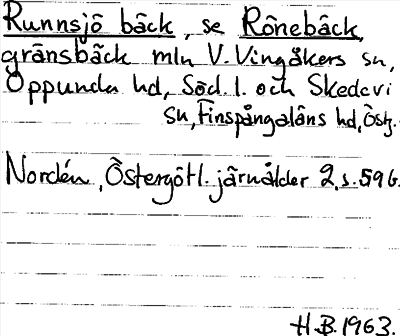 Runnsjö bäck, se Rönebäck,
gränsbäck mln V. Vingåkers sn,
Oppunda hd, Söd.l. och Skedevi
sn, Finspångaläns hd, Östg.
Nordén, Östergötl. järnålder 2, s. 596.
H.B. 1963.